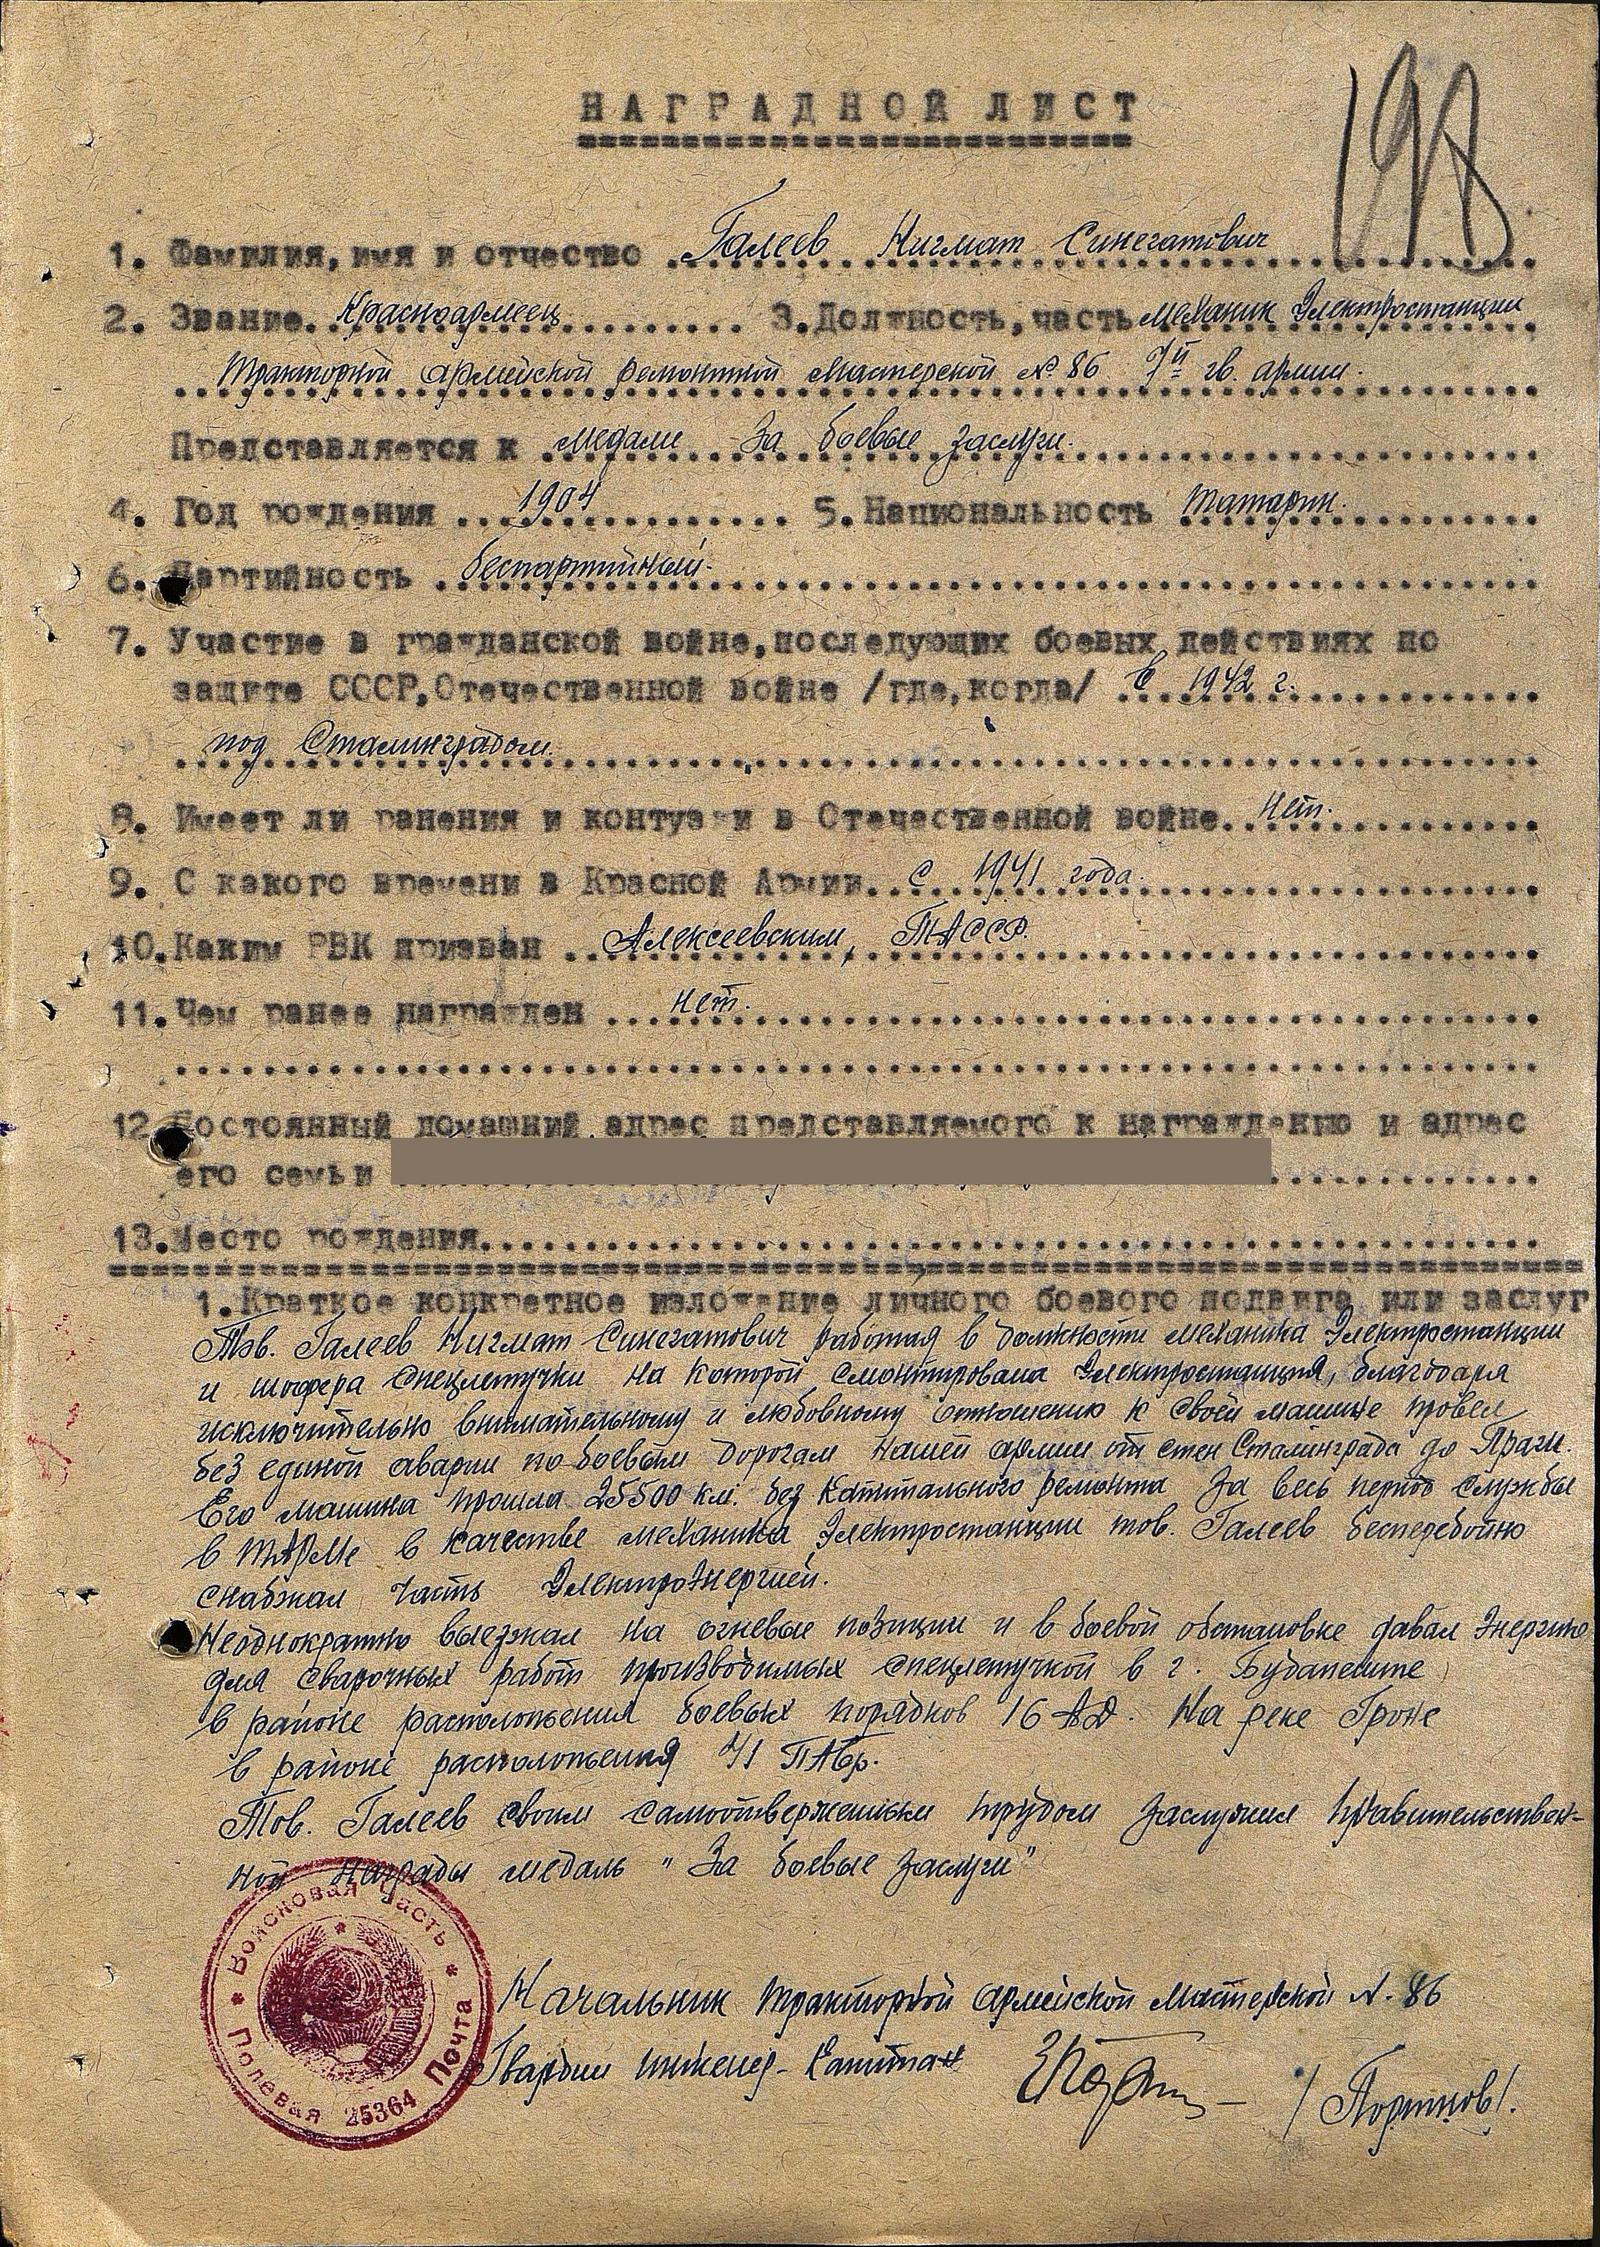 198
НАГРАДНОЙ ЛИСТ
1. Фамилия, имя и отчество Галеев Нигмат Синегатович
2. Звание Красноармеец 3. Должность, часть механик Электростанции
Тракторной армейской ремонтной мастерской № 86 7й гв. армии.
Представляется к медали За боевые заслуги.
4. Год рождения 1904 5. Национальность татарин.
6. Партийность беспартийный.
7. Участие в гражданской войне, последующих боевых действиях по
защите СССР, Отечественной войне /где, когда/ В 1942 г.
под Сталинградом.
8. Имеет ли ранения и контузии в Отечественной войне Нет.
9. С какого времени в Красной Армии с 1941 года.
10. Каким РВК призван Алексеевским, ТАССР.
11. Чем ранее награжден Нет.
12. Постоянный домашний адрес представляемого к награждению и адрес
его семьи
13. Место рождения
1. Краткое конкретное изложение личного боевого подвига или заслуг
Тов. Галеев Нигмат Синегатович работая в должности механика Электростанции
и шофера спецлетучки на которой смонтирована Электростанция, благодаря
исключительно внимательному и любовному отношению к своей машине провел
без единой аварии по боевым дорогам нашей армии от стен Сталинграда до Праги.
Его машина прошла 25500 км. без капитального ремонта За весь период службы
в ТАРМе в качестве механика Электростанции тов. Галеев бесперебойно
снабжал часть Электроэнергией.
Неоднократно выезжал на огневые позиции и в боевой обстановке давал Энергию
для сварочных работ производимых спецлетучкой в г. Будапеште
в районе расположения боевых порядков 16 АД. На реке Гроне
в районе расположения 41 ПАбр.
Тов. Галеев своим самоотверженным трудом заслужил правительствен-
ной награды медаль "За боевые заслуги"
Войсковая Часть
Полевая Почта
25364
Начальник тракторной армейской мастерской № 86
Гвардии инженер-капитан /Портнов/.